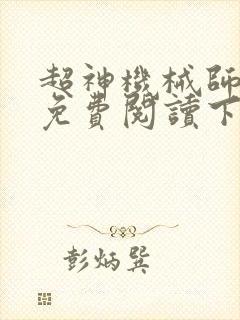 超神機械師
免費閱讀下
彭炳巽